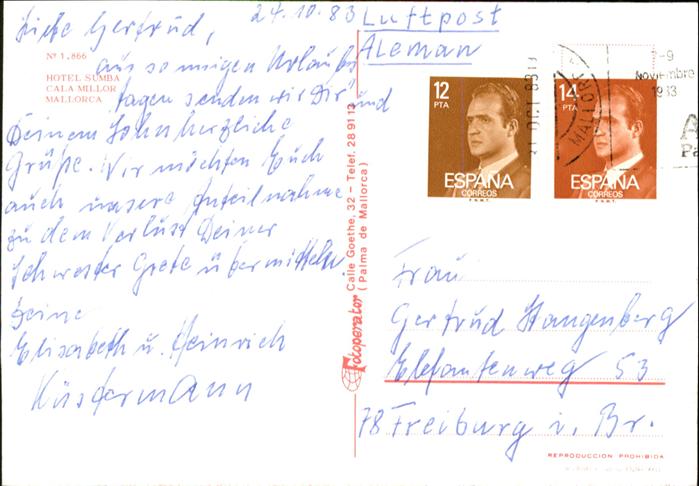 24.10.83
Liebe Gertrud,
aus sonnigen Urlaubs
tagen senden wir Dir und
Deinem Sohn herzliche
Grüße. Wir möchten Euch
auch unsere Anteilnahme
zu dem Verlust Deiner
Schwester Grete übermitteln.
Deine
Elisabeth u. Heinrich
Küstermann
Nº 1.866
HOTEL SUMBA
CALA MILLOR
MALLORCA
Fotoperator Calle Goethe, 32 - Telef. 289112
(Palma de Mallorca)
Luftpost
Aleman
12
PTA
ESPAÑA
CORREOS
F.N.M.T.
14
PTA
ESPAÑA
CORREOS
F.N.M.T.
OCT 83
MALLORC
-9
Noviembre
1983
Frau
Gertrud Hangenberg
Elefantenweg 53
78 Freiburg i. Br.
REPRODUCCION PROHIBIDA